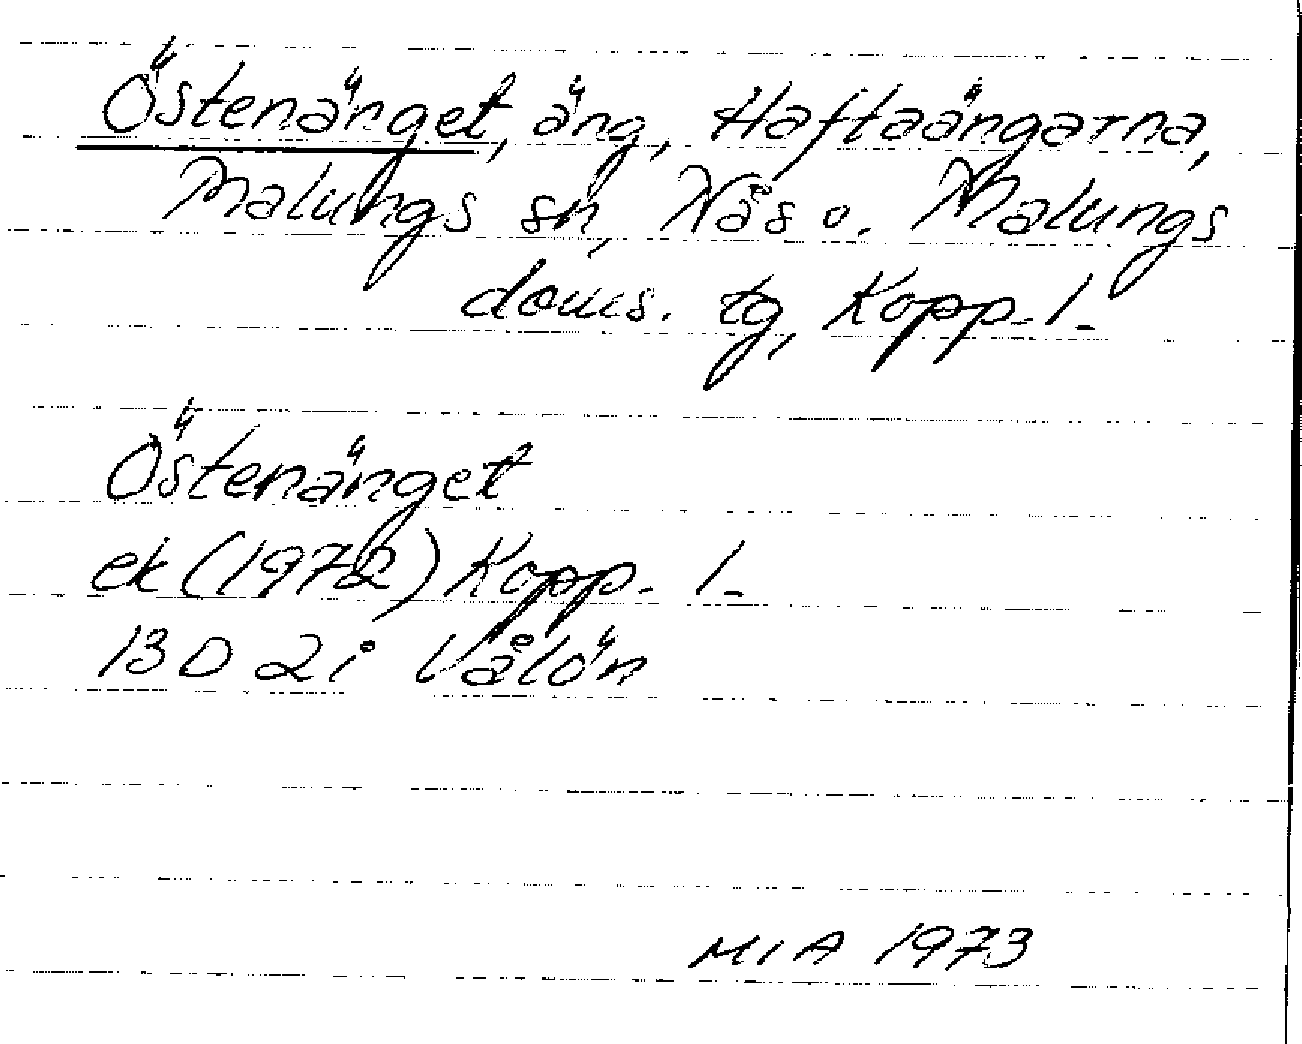 Östenänget, äng, Haftaängarna,
Malungs sn, Nås o. Malungs
doms. tg, Kopp. l.
Östenänget
ek (1972) Kopp. l.
13 D 2i Vålön
MIA 1973